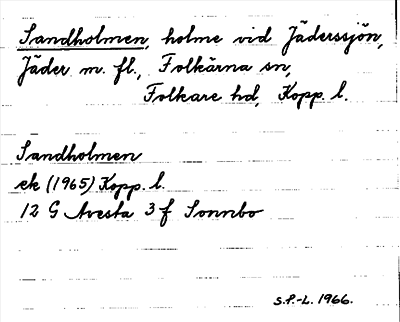 Sandholmen, holme vid Jäderssjön,
Jäder m. fl., Folkärna sn,
Folkare hd, Kopp. l.
Sandholmen
ek (1965) Kopp. l.
12 G Avesta 3 f Sonnbo
S.P.-L. 1966.